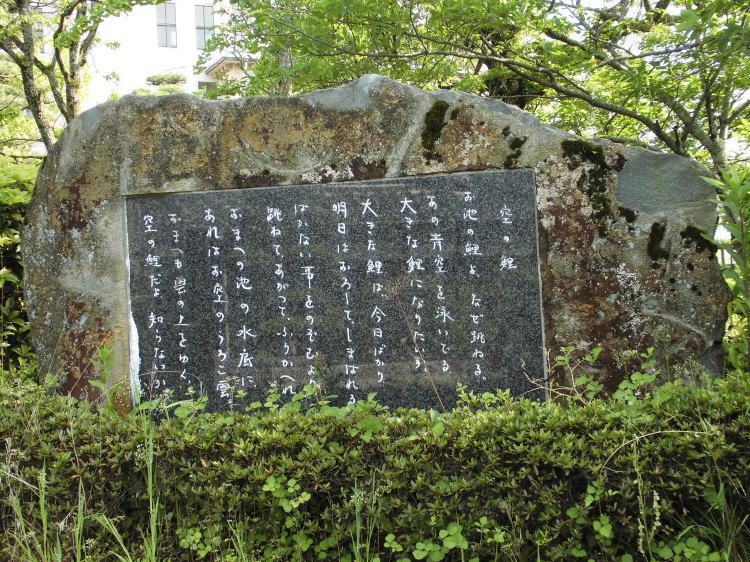 空の鯉
お池の鯉よ、なぜ跳ねる。
あの青空を泳いでる
大きな鯉になりたいか。
大きな鯉は、今日ばかり
明日はおろしてしまはれる
はかない事をのぞむより
跳ねてあがつて、ふりかへれ
おまへの池の水底に
あれはお空のうろこ雲。
おまへも雲の上をゆく、
空の鯉だよ、知らないか。